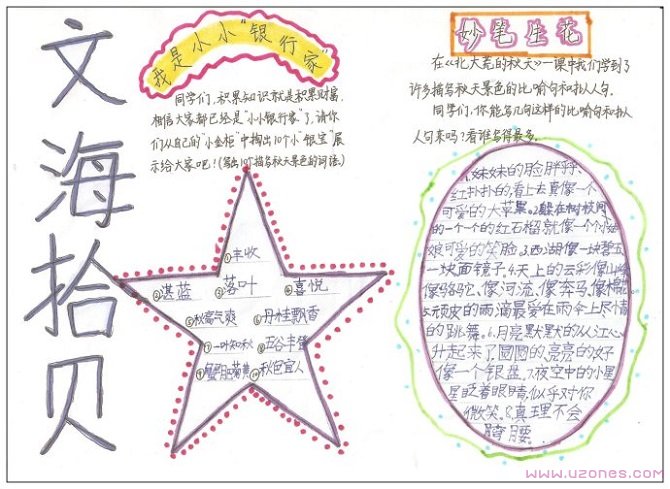 文海拾贝
我是小小“银行家”
同学们,积累知识就是积累财富,
相信大家都已经是“小小银行家”了,请你
们从自己的“小金柜”中掏出10个小“银宝”展
示给大家吧!(写出10个描写秋天景色的词语)
①丰收
②湛蓝 ③落叶 ④喜悦
⑤秋高气爽 ⑥丹桂飘香
⑦一叶知秋 ⑧五谷丰登
⑨蟹肥菊黄 ⑩秋色宜人
妙笔生花
在《北大荒的秋天》一课中我们学到了
许多描写秋天景色的比喻句和拟人句。
同学们,你能写几句这样的比喻句和拟人
人句来吗?看谁写得最多。
1.妹妹的脸胖乎乎、
红扑扑的,看上去真像一个
可爱的大苹果。2.躲在树枝间
的一个个的红石榴就像一个个小姑
娘可爱的笑脸。3.西湖像一块碧玉
一块面镜子。4.天上的云彩像山峰
像骆驼、像河流、像奔马、像棉花
5.顽皮的雨滴最爱在雨伞上尽情
的跳舞。6.月亮默默的从江心
升起来了圆圆的、亮亮的、好
像一个银盘。7.夜空中的小星
星眨着眼睛,似乎对你
微笑。8.真理不会
弯腰……
www.uzones.com